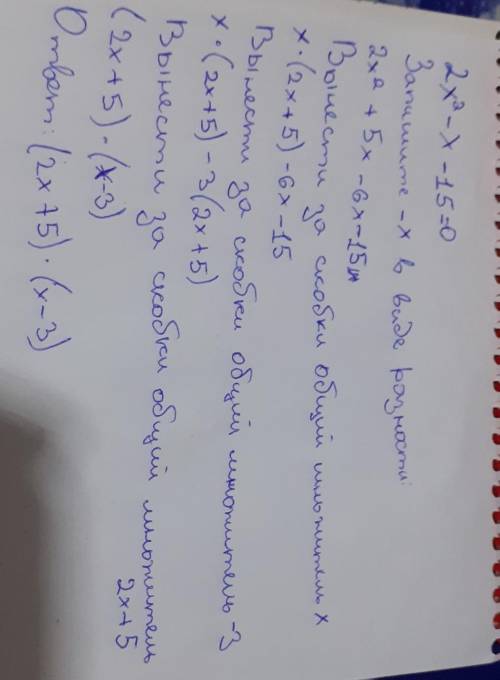 2x² - x - 15 = 0
Запишите -x в виде разности:
2x² + 5x - 6x - 15
Вынести за скобки общий множитель x
x · (2x + 5) - 6x - 15
Вынести за скобки общий множитель -3
x · (2x + 5) - 3(2x + 5)
Вынести за скобки общий множитель
2x + 5
(2x + 5) · (x - 3)
Ответ: (2x + 5) · (x - 3)